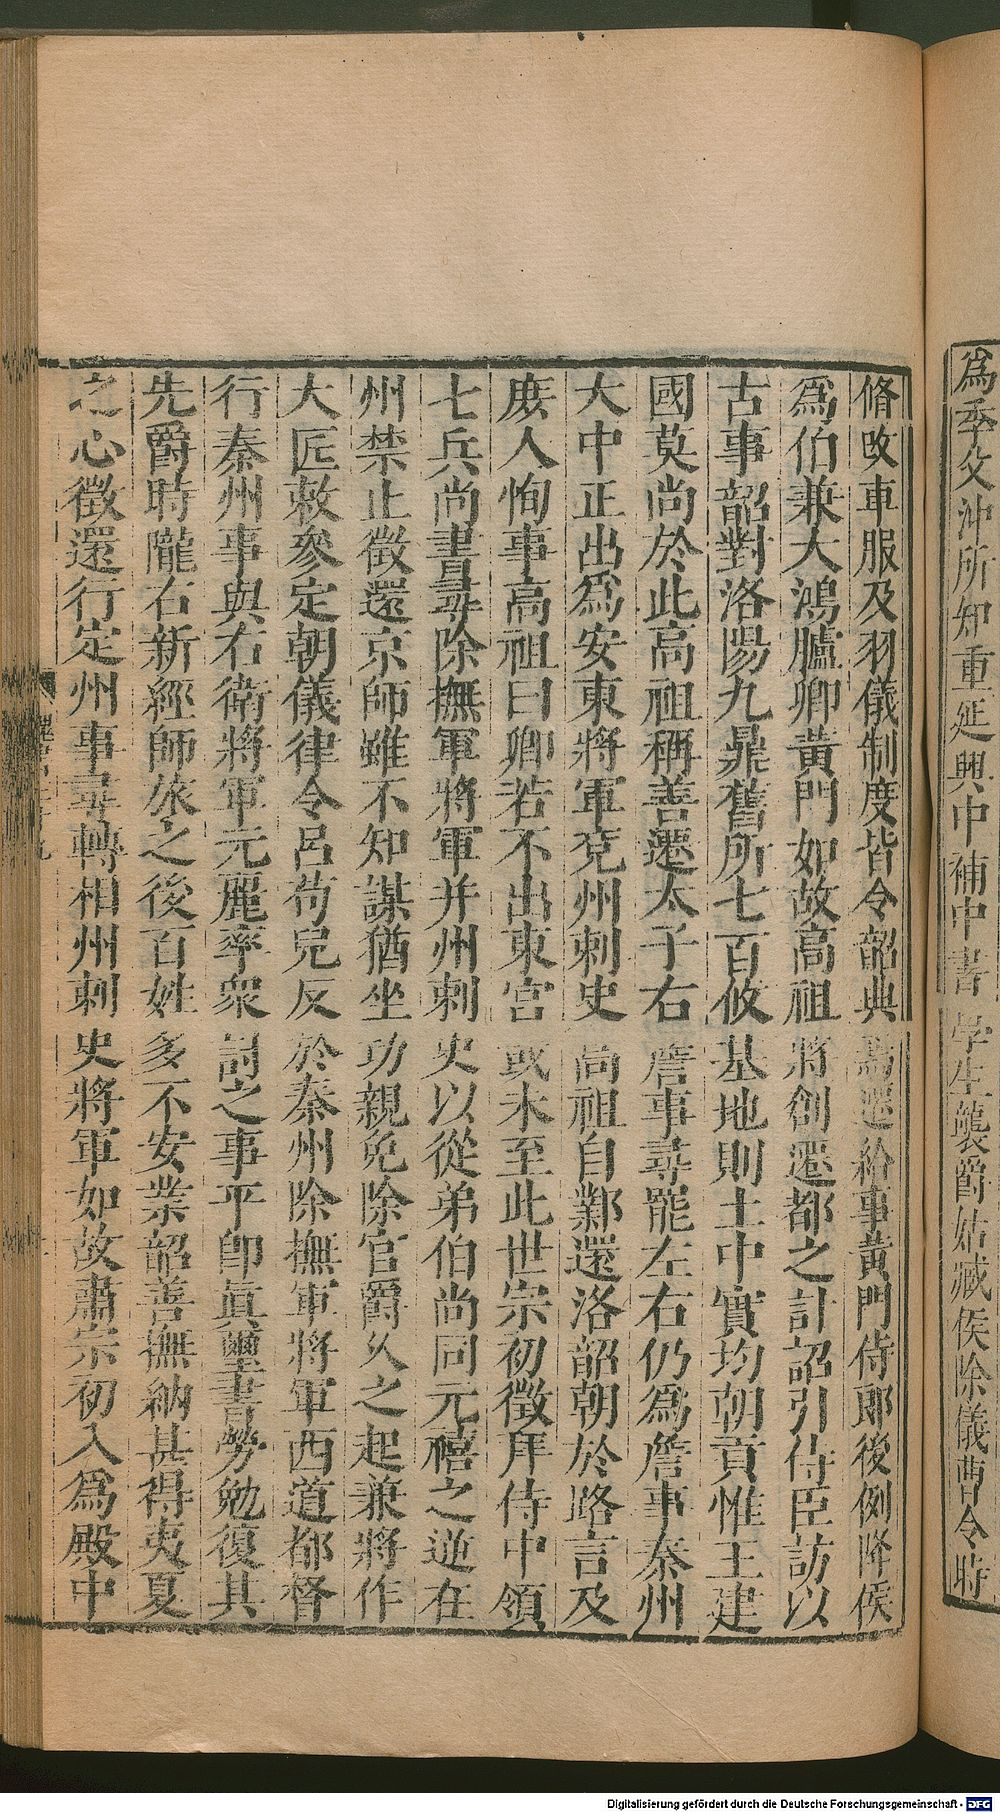 爲季父沖所知重延興中補中書學生襲爵姑臧侯除儀曹令時
脩改車服及羽儀制度皆令韶典焉遷給事黃門侍郎後例降侯
爲伯兼大鴻臚卿黃門如故高祖將創遷都之計詔引侍臣訪以
古事韶對洛陽九鼎舊所七百攸基地則土中實均朝貢惟王建
國莫尚於此高祖稱善遷太子右詹事尋罷左右仍爲詹事秦州
大中正出爲安東將軍兗州刺史高祖自鄴還洛韶朝於路言及
庶人恂事高祖曰卿若不出東宮或未至此世宗初徵拜侍中領
七兵尚書尋除撫軍將軍并州刺史以從弟伯尚同元禧之逆在
州禁止徵還京師雖不知謀猶坐功親免除官爵久之起兼將作
大匠敕參定朝儀律令呂苟兒反於秦州除撫軍將軍西道都督
行秦州事與右衛將軍元麗率衆討之事平卽眞璽書勞勉復其
先爵時隴右新經師旅之後百姓多不安業韶善撫納甚得夷夏
之心徵還行定州事尋轉相州刺史將軍如故肅宗初入爲殿中
Digitalisierung gefördert durch die Deutsche Forschungsgemeinschaft - DFG